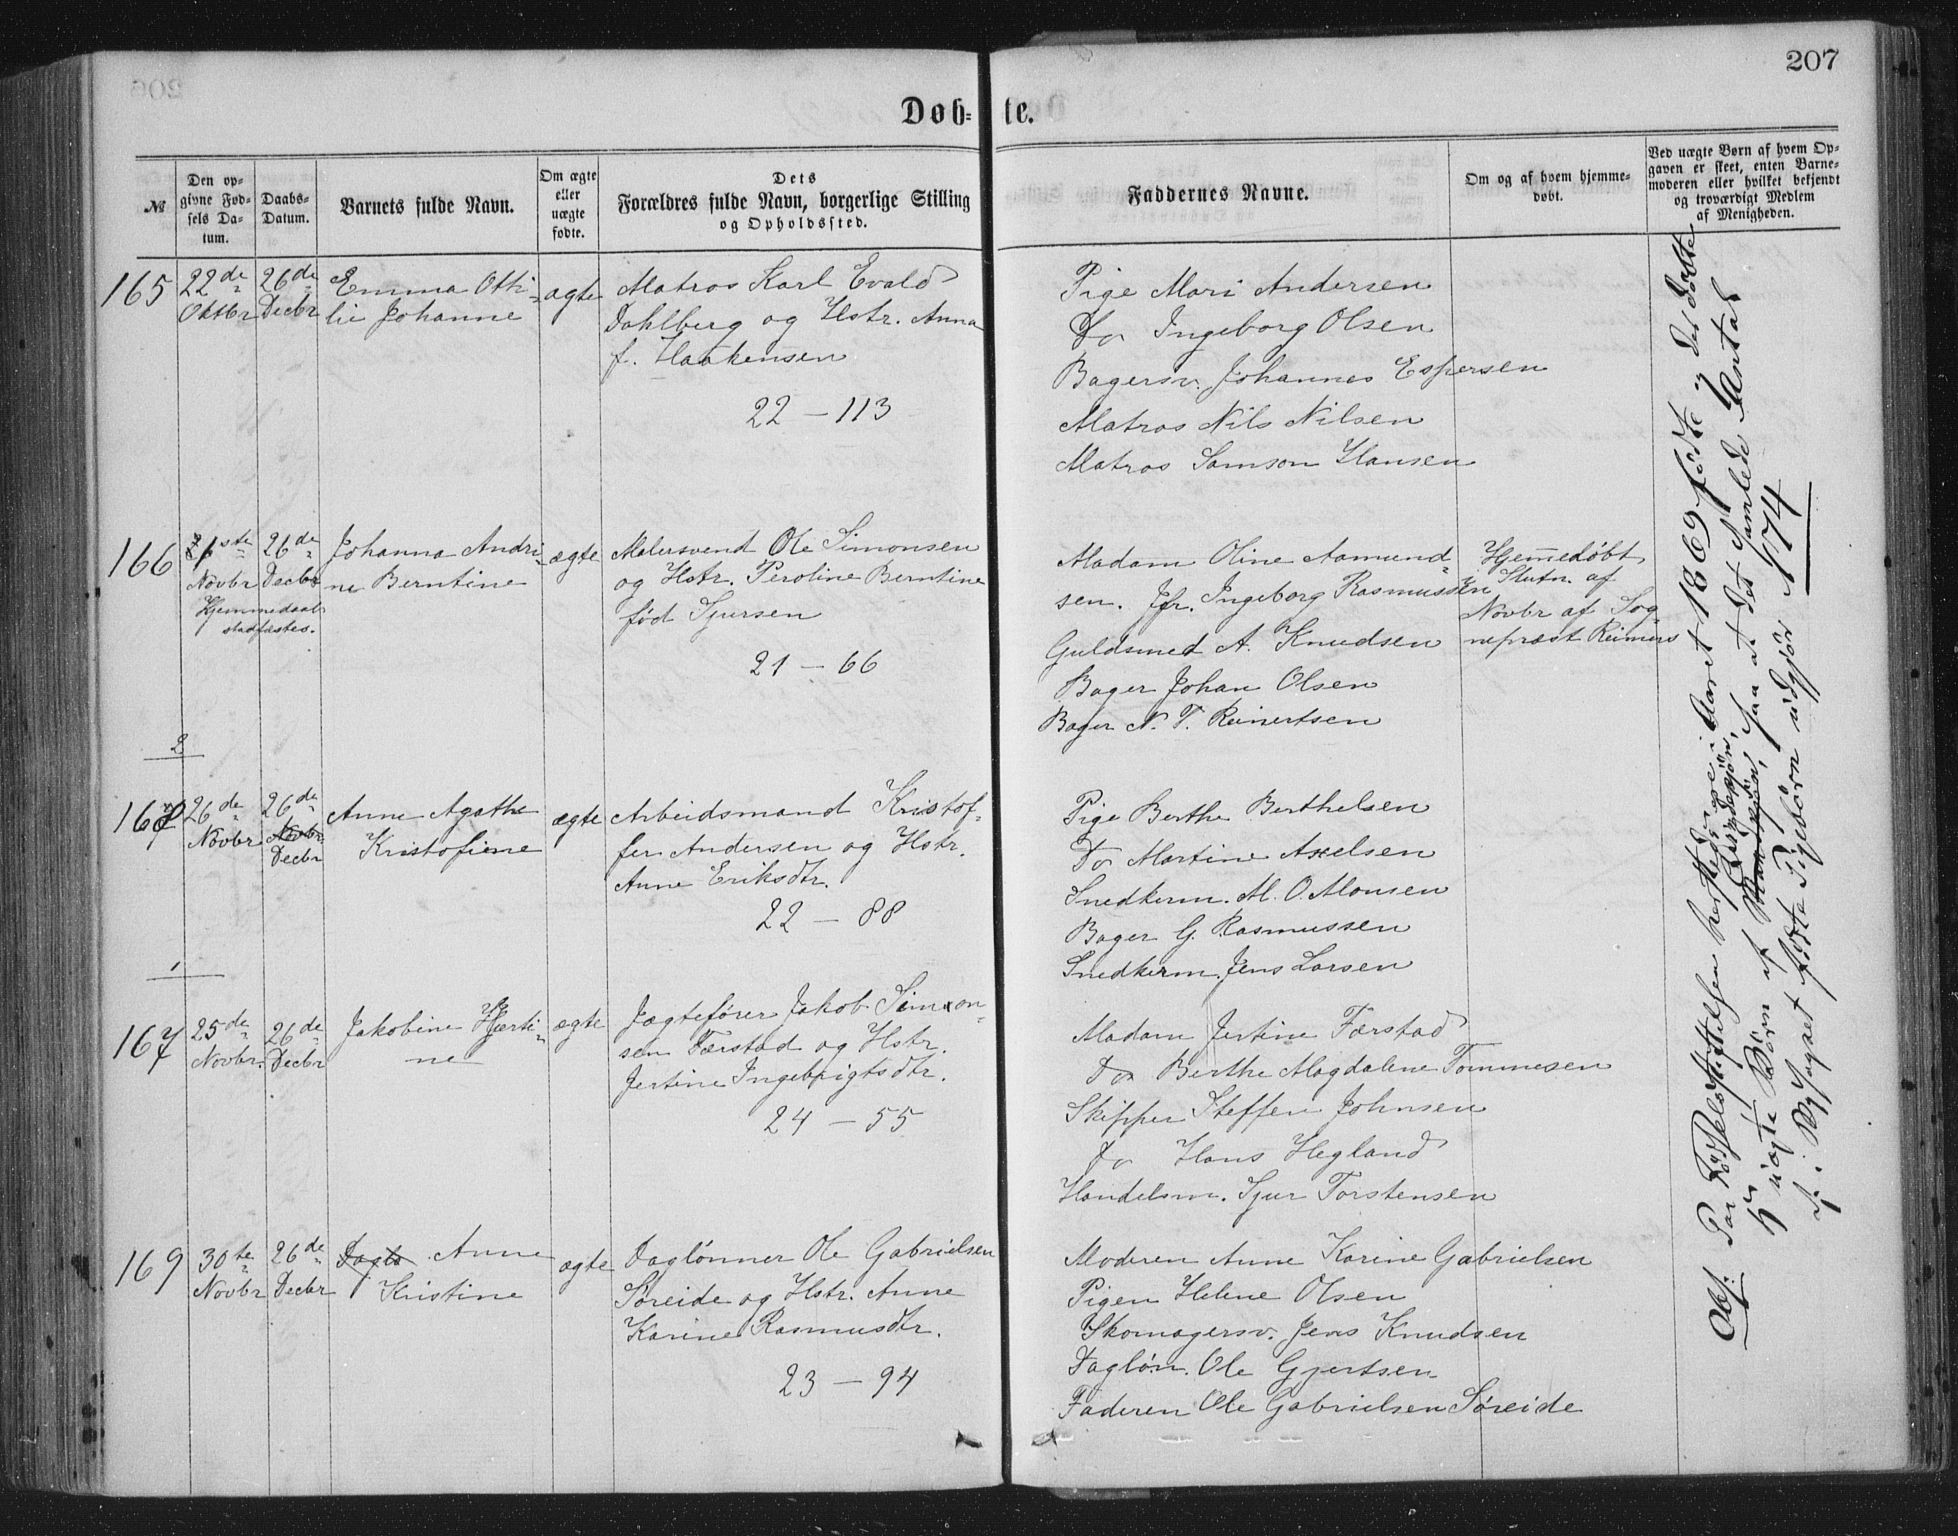 207
Døb- te.
№
Den op-
givne Fød-
sels Da-
tum.
Daabs-
Datum.
Barnets fulde Navn.
Om ægte
eller
uægte
fødte.
Dets
Forældres fulde Navn, borgerlige Stilling
og Opholdssted.
Faddernes Navne.
Om og af hvem hjemme-
døbt.
Ved uægte Børn af hvem Op-
gaven er skeet, enten Barne-
moderen eller hvilket bekjendt
og troværdigt Medlem
af Menigheden.
165
22de
Oktbr
26de
Decbr
Emma Otti-
lie Johanne
ægte
Matros Karl Evald
Dahlberg og Hstr. Anna
f. Haakensen
22 - 113
Pige Mari Andersen
Do Ingeborg Olsen
Bagersv. Johannes Espersen
Matros Nils Nilsen
Matros Samson Hansen
166
1ste
Novbr
Hjemmedaab
stadfæstes.
26de
Decbr
Johanna Andri-
ne Berntine
ægte
Malersvend Ole Simonsen
og Hstr. Peroline Berntine
født Sjursen
21 - 66
Madam Oline Aamund-
sen. Jfr. Ingeborg Rasmussen
Guldsmed A. Knudsen
Bager Johan Olsen
Bager N. T. Reinertsen
Hjemmedøbt
i Slutn. af
Novbr af Sog-
nepræst Reimers
2
168
26de
Novbr
26de
Novbr
Decbr
Anne Agathe
Kristofine
ægte
Arbeidsmand Kristof-
fer Andersen og Hstr.
Anne Eriksdtr.
22 - 88
Pige Berthe Berthelsen
Do Martine Axelsen
Snedkerm. M. O. Monsen
Bager G. Rasmussen
Snedkerm. Jens Larsen
1
167
25de
Novbr.
26de
Decbr
Jakobine Hjerti-
ne
ægte
Jægtefører Jakob Simon-
sen Færstad og Hstr.
Jertine Ingebrigtsdtr.
24 - 55
Madam Jertine Færstad
Do Berthe Magdalene Tommesen
Skipper Steffen Johnsen
Do Hans Hegland
Handelsm. Sjur Torstensen
169
30te
Novbr
26de
Decbr
Dagls Anne
Kristine
ægte
Daglønner Ole Gabrielsen
Søreide og Hstr. Anne
Karine Rasmusdtr.
23 - 94
Moderen Anne Karine Gabrielsen
Pigen Helene Olsen
Skomagersv. Jens Knudsen
Dagløn. Ole Gjertsen
Faderen Ole Gabrielsen Søreide
Obs: Paa Fødselsstiftelsen her ere i Aaret 1869 fødte og det døbte
uægte Børn af Mandkjøn, Kvindekjøn, saa at det samlede Antal
af i Aaret fødte Pigebørn udgjør 174